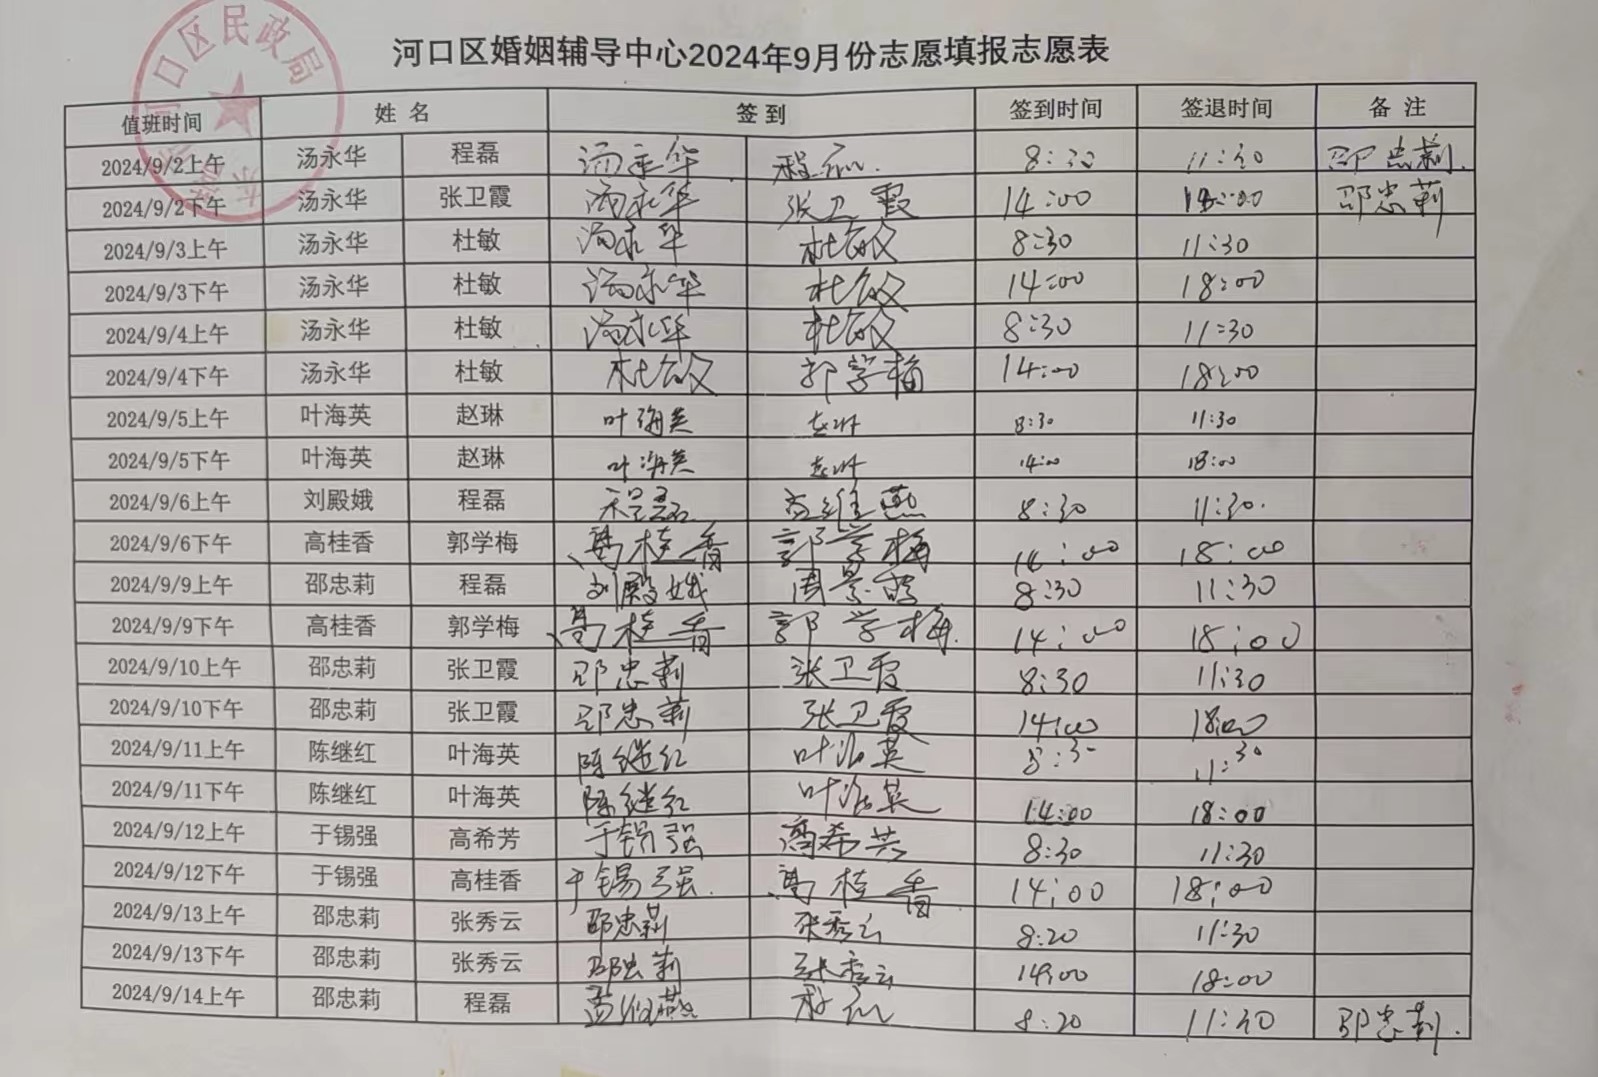 河口区民政局
河口区婚姻辅导中心2024年9月份志愿填报志愿表
值班时间 姓 名 签 到 签到时间 签退时间 备 注
2024/9/2上午 汤永华 程磊 汤永华 程磊. 8:30 11:30 邵忠莉.
2024/9/2下午 汤永华 张卫霞 汤永华 张卫霞 14:00 18:00 邵忠莉
2024/9/3上午 汤永华 杜敏 汤永华 杜敏 8:30 11:30
2024/9/3下午 汤永华 杜敏 汤永华 杜敏 14:00 18:00
2024/9/4上午 汤永华 杜敏 汤永华 杜敏 8:30 11:30
2024/9/4下午 汤永华 杜敏 杜敏 郭学梅 14:00 18:00
2024/9/5上午 叶海英 赵琳 叶海英 赵琳 8:30 11:30
2024/9/5下午 叶海英 赵琳 叶海英 赵琳 14:00 18:00
2024/9/6上午 刘殿娥 程磊 程磊 孟维燕 8:30 11:30.
2024/9/6下午 高桂香 郭学梅 高桂香 郭学梅 14:00 18:00
2024/9/9上午 邵忠莉 程磊 刘殿娥 8:30 11:30
2024/9/9下午 高桂香 郭学梅 高桂香 郭学梅. 14:00 18:00
2024/9/10上午 邵忠莉 张卫霞 邵忠莉 张卫霞 8:30 11:30
2024/9/10下午 邵忠莉 张卫霞 邵忠莉 张卫霞 14:00 18:00
2024/9/11上午 陈继红 叶海英 陈继红 叶海英 8:30 11:30
2024/9/11下午 陈继红 叶海英 陈继红 叶海英 14:00 18:00
2024/9/12上午 于锡强 高希芳 于锡强 高希芳 8:30 11:30
2024/9/12下午 于锡强 高桂香 于锡强. 高桂香 14:00 18:00
2024/9/13上午 邵忠莉 张秀云 邵忠莉 张秀云 8:20 11:30
2024/9/13下午 邵忠莉 张秀云 邵忠莉 张秀云 14:00 18:00
2024/9/14上午 邵忠莉 程磊 孟维燕 程磊 8:20 11:30 邵忠莉.